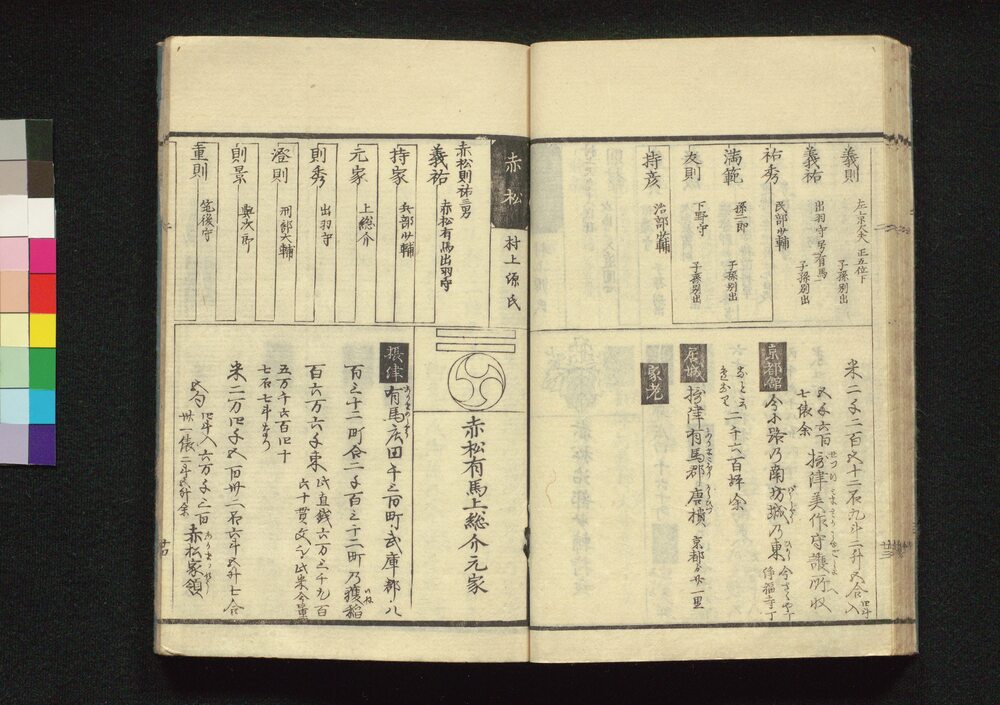 義則 左京大夫 正五位下
義祐 出羽守号有馬 子孫別出
祐秀 民部少輔 子孫別出
満範 孫二郎 子孫別出
友則 下野守 子孫別出
持彦 治部少輔
米二千二百五十二石九斗二升五合入
五千六百 摂津美作守護所収
七俵余
京都館 今小路乃南坊城乃東
二千六百坪余
居城 摂津有馬郡唐櫃 京都より廿一里
家老
赤松
村上源氏
赤松則祐三男
義祐 赤松有馬出羽守
持家 兵部少輔
元家 上総介
則秀 出羽守
澄則 刑部大輔
則景 與次郎
重則 筑後守
赤松有馬上総介元家
摂津 有馬広田千三百町武庫郡八
百三十二町合二千百三十二町乃獲稲
百六万六千束
五万千六百四十
七石七斗
米二万四千五百卅二石六斗五升七合
五勺 四斗入六万千三百 赤松家領
卅一俵二斗五升余